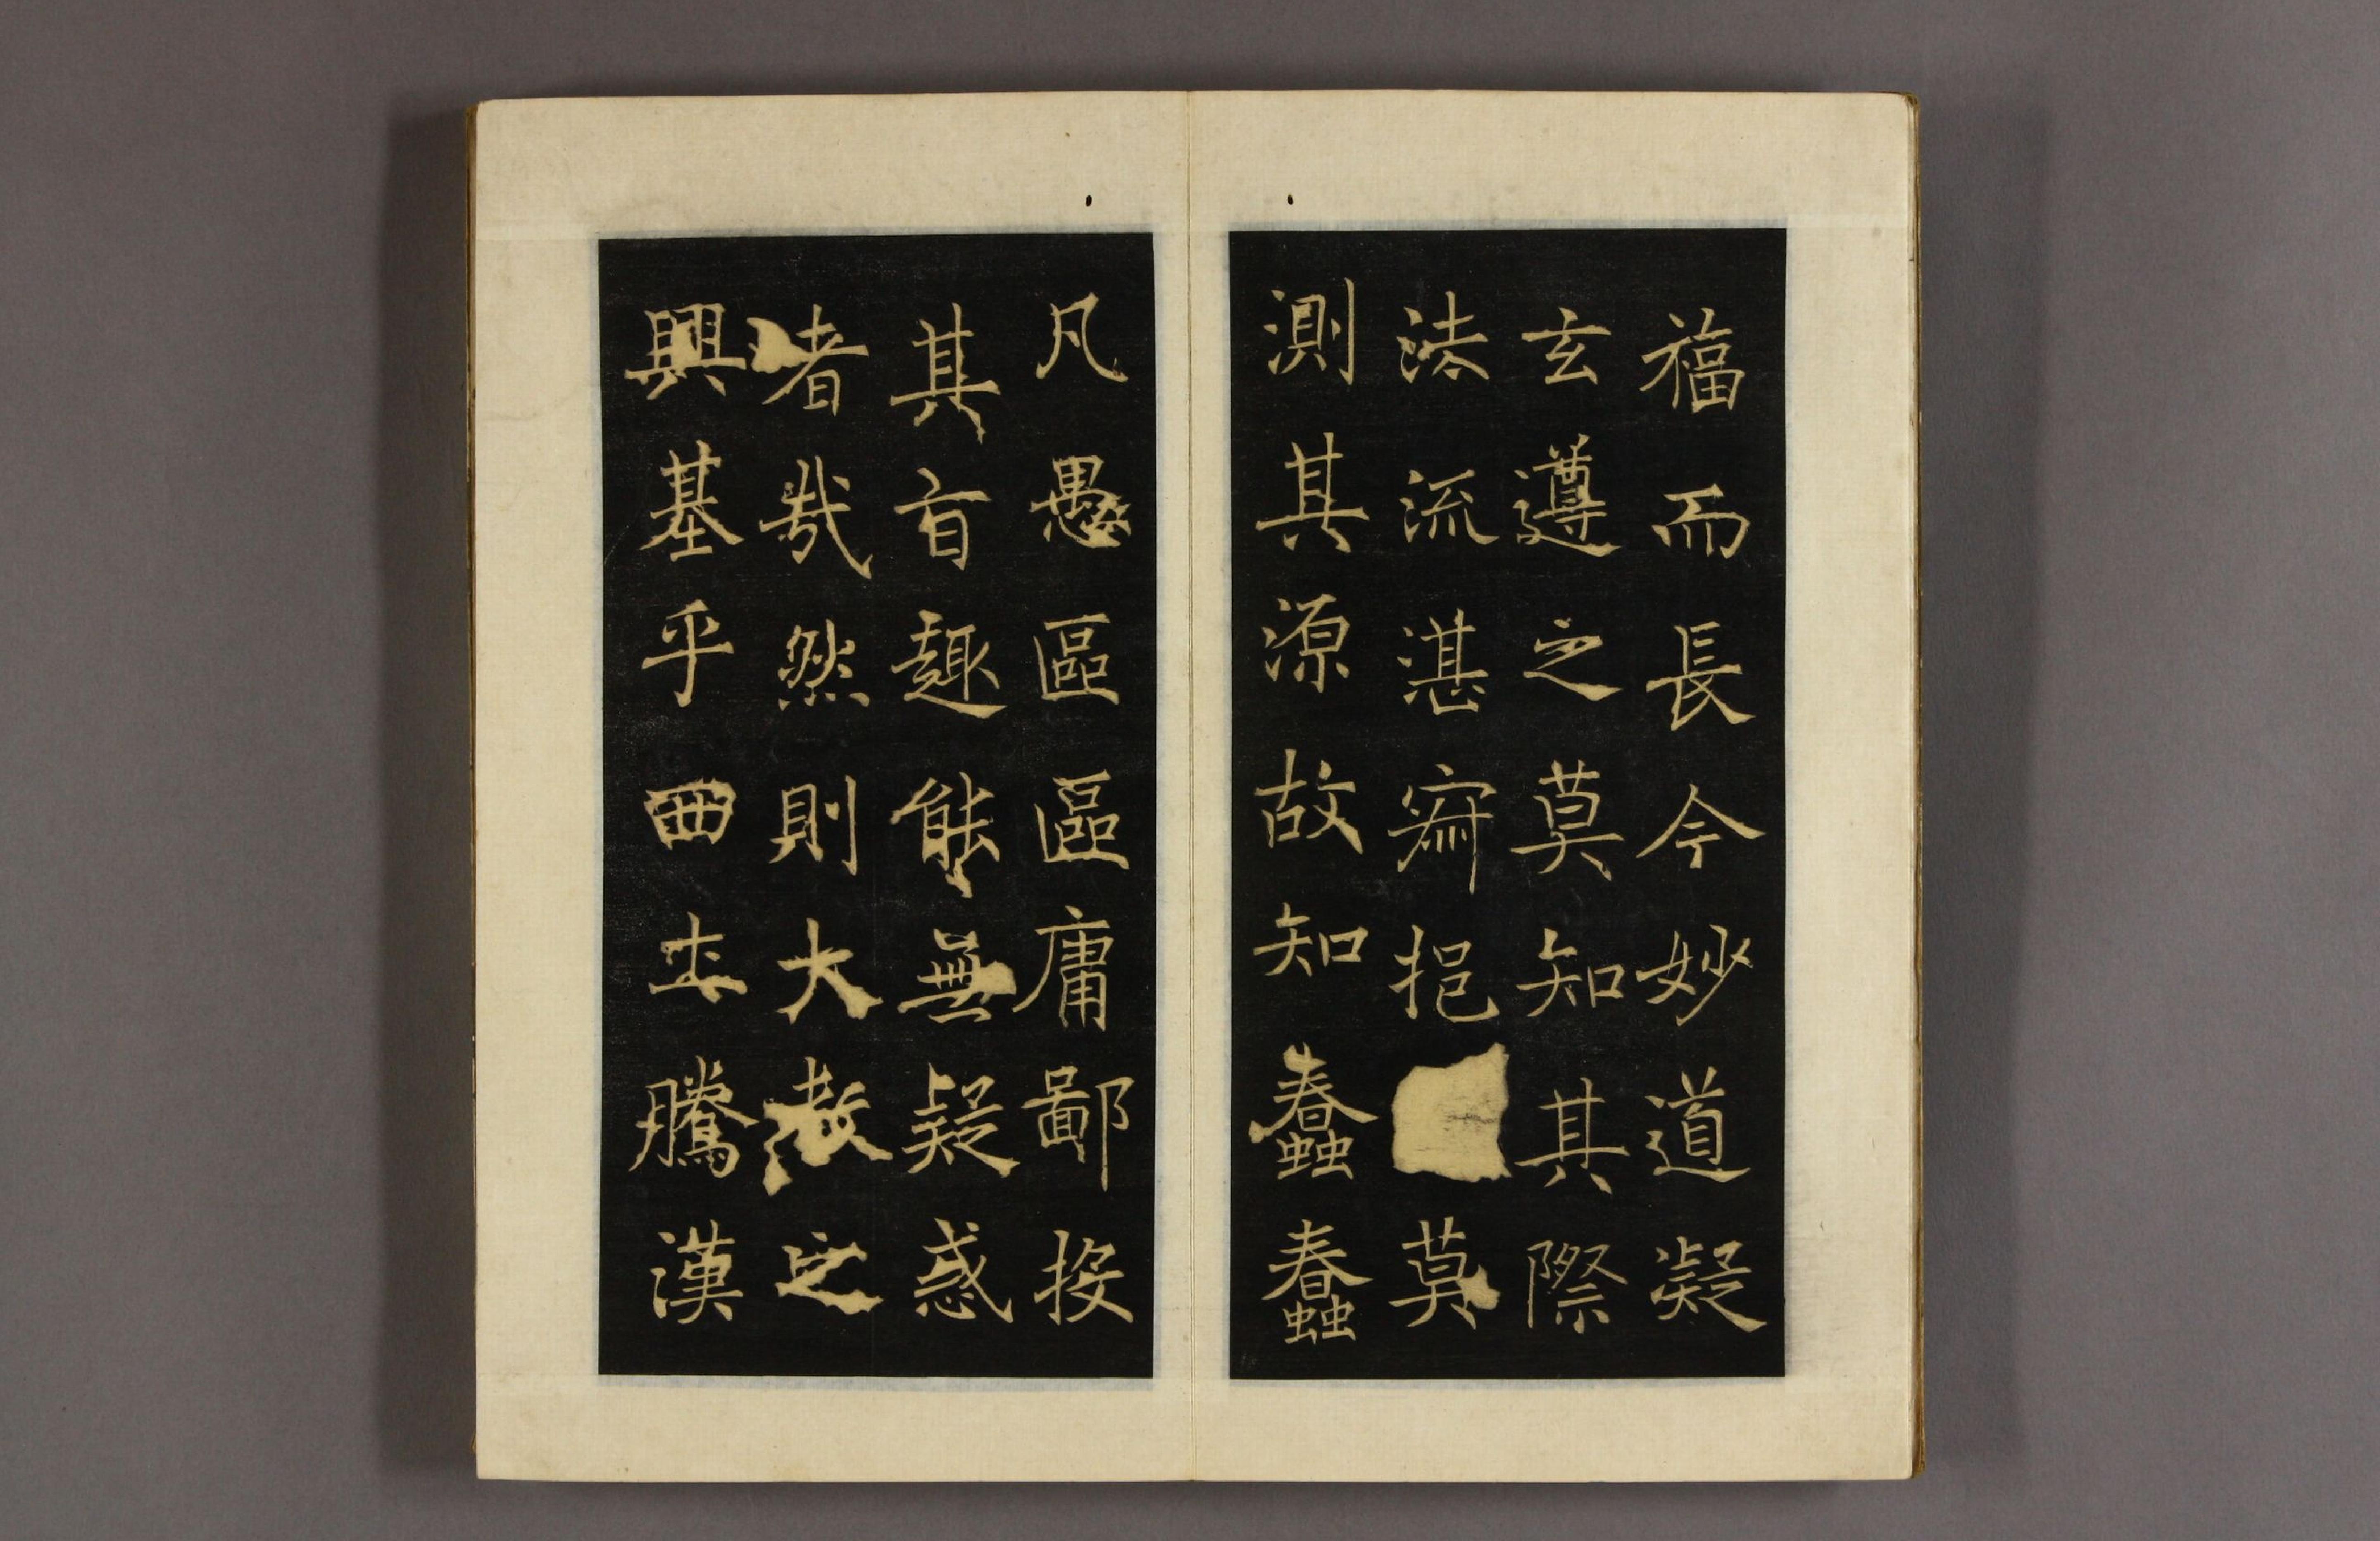 福而長今妙道凝
玄遵之莫知其際
法流湛寂挹莫
測其源故知蠢蠢
凡愚區區庸鄙投
其旨趣能無疑惑
者哉然則大教之
興基乎西土騰漢